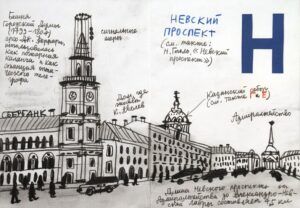 Башня
Городской Думы
(1799-1804)
арх. Дж. Феррари,
использовалась
как обзорная
каланча и как
станция опти-
ческого теле-
графа
сигнальные
шары
Дом, где
жил
НЕВСКИЙ
ПРОСПЕКТ
(см. также:
Н. Гоголь, «Невский
проспект»)
Н
Казанский собор
(см. также
Адмиралтейство
Длина Невского проспекта от
Адмиралтейства до Александро-Нев-
ской лавры составляет 4,5 км